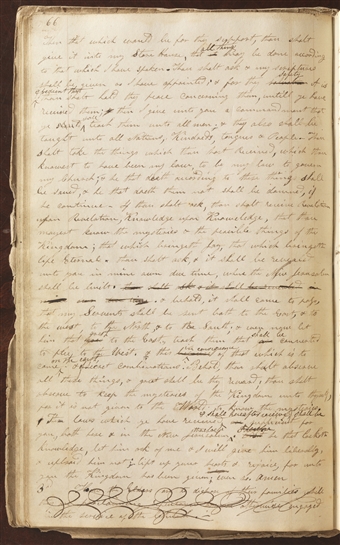 66
Then that which would be for thy support, thou shalt
give it into my Store house, that all things may be done according
to that which I have spoken. Thou shalt ask & my scriptures
shall be given as I have appointed; & for thy safety it is
expedient that
thou shalt hold thy peace concerning them, until ye have
received them; then I give unto you a commandment that
ye shall teach them unto all men; & they also shall be
taught unto all Nations, Kindreds, tongues & People. Thou
shalt take the things which thou hast Received, which thou
knowest to have been my Law, to be my law to govern
my Church; & he that doeth according to these things shall
be saved, & he that doeth them not shall be damned, if
he continue. If thou shalt ask, thou shalt receive Revelation
upon Revelation, Knowledge upon Knowledge, that thou
mayest know the mysteries & the peacible things of the
Kingdom; that which bringeth Joy, that which bringeth
life Eternal. thou shalt ask, & it shall be revealed
unto you in mine own due time, where the New Jerusalem
shall be built.
& behold, it shall come to pass
that my Servants shall be sent both to the East, & to
the west, to the North, & to the South; & even now let
him that goeth to the East, teach them that shall be converted
to flee to the West; & this in consequence of that which is to
come on the earth, & of secret combinations. Behold, thou shalt observe
all these things, & great shall be thy reward; thou shalt
observe to keep the mysteries of the Kingdom unto thyself,
for it is not given to the World to know the mysteries.
& the Laws which ye have received & shall hereafter receive shall be sufficient for
you, both here & in the New Jerusalem. he that lacketh
knowledge, let him ask of me & I will give him liberally,
& upbraid him not. lift up your hearts & rejoice, for unto
you the Kingdom has been given; even so. Amen